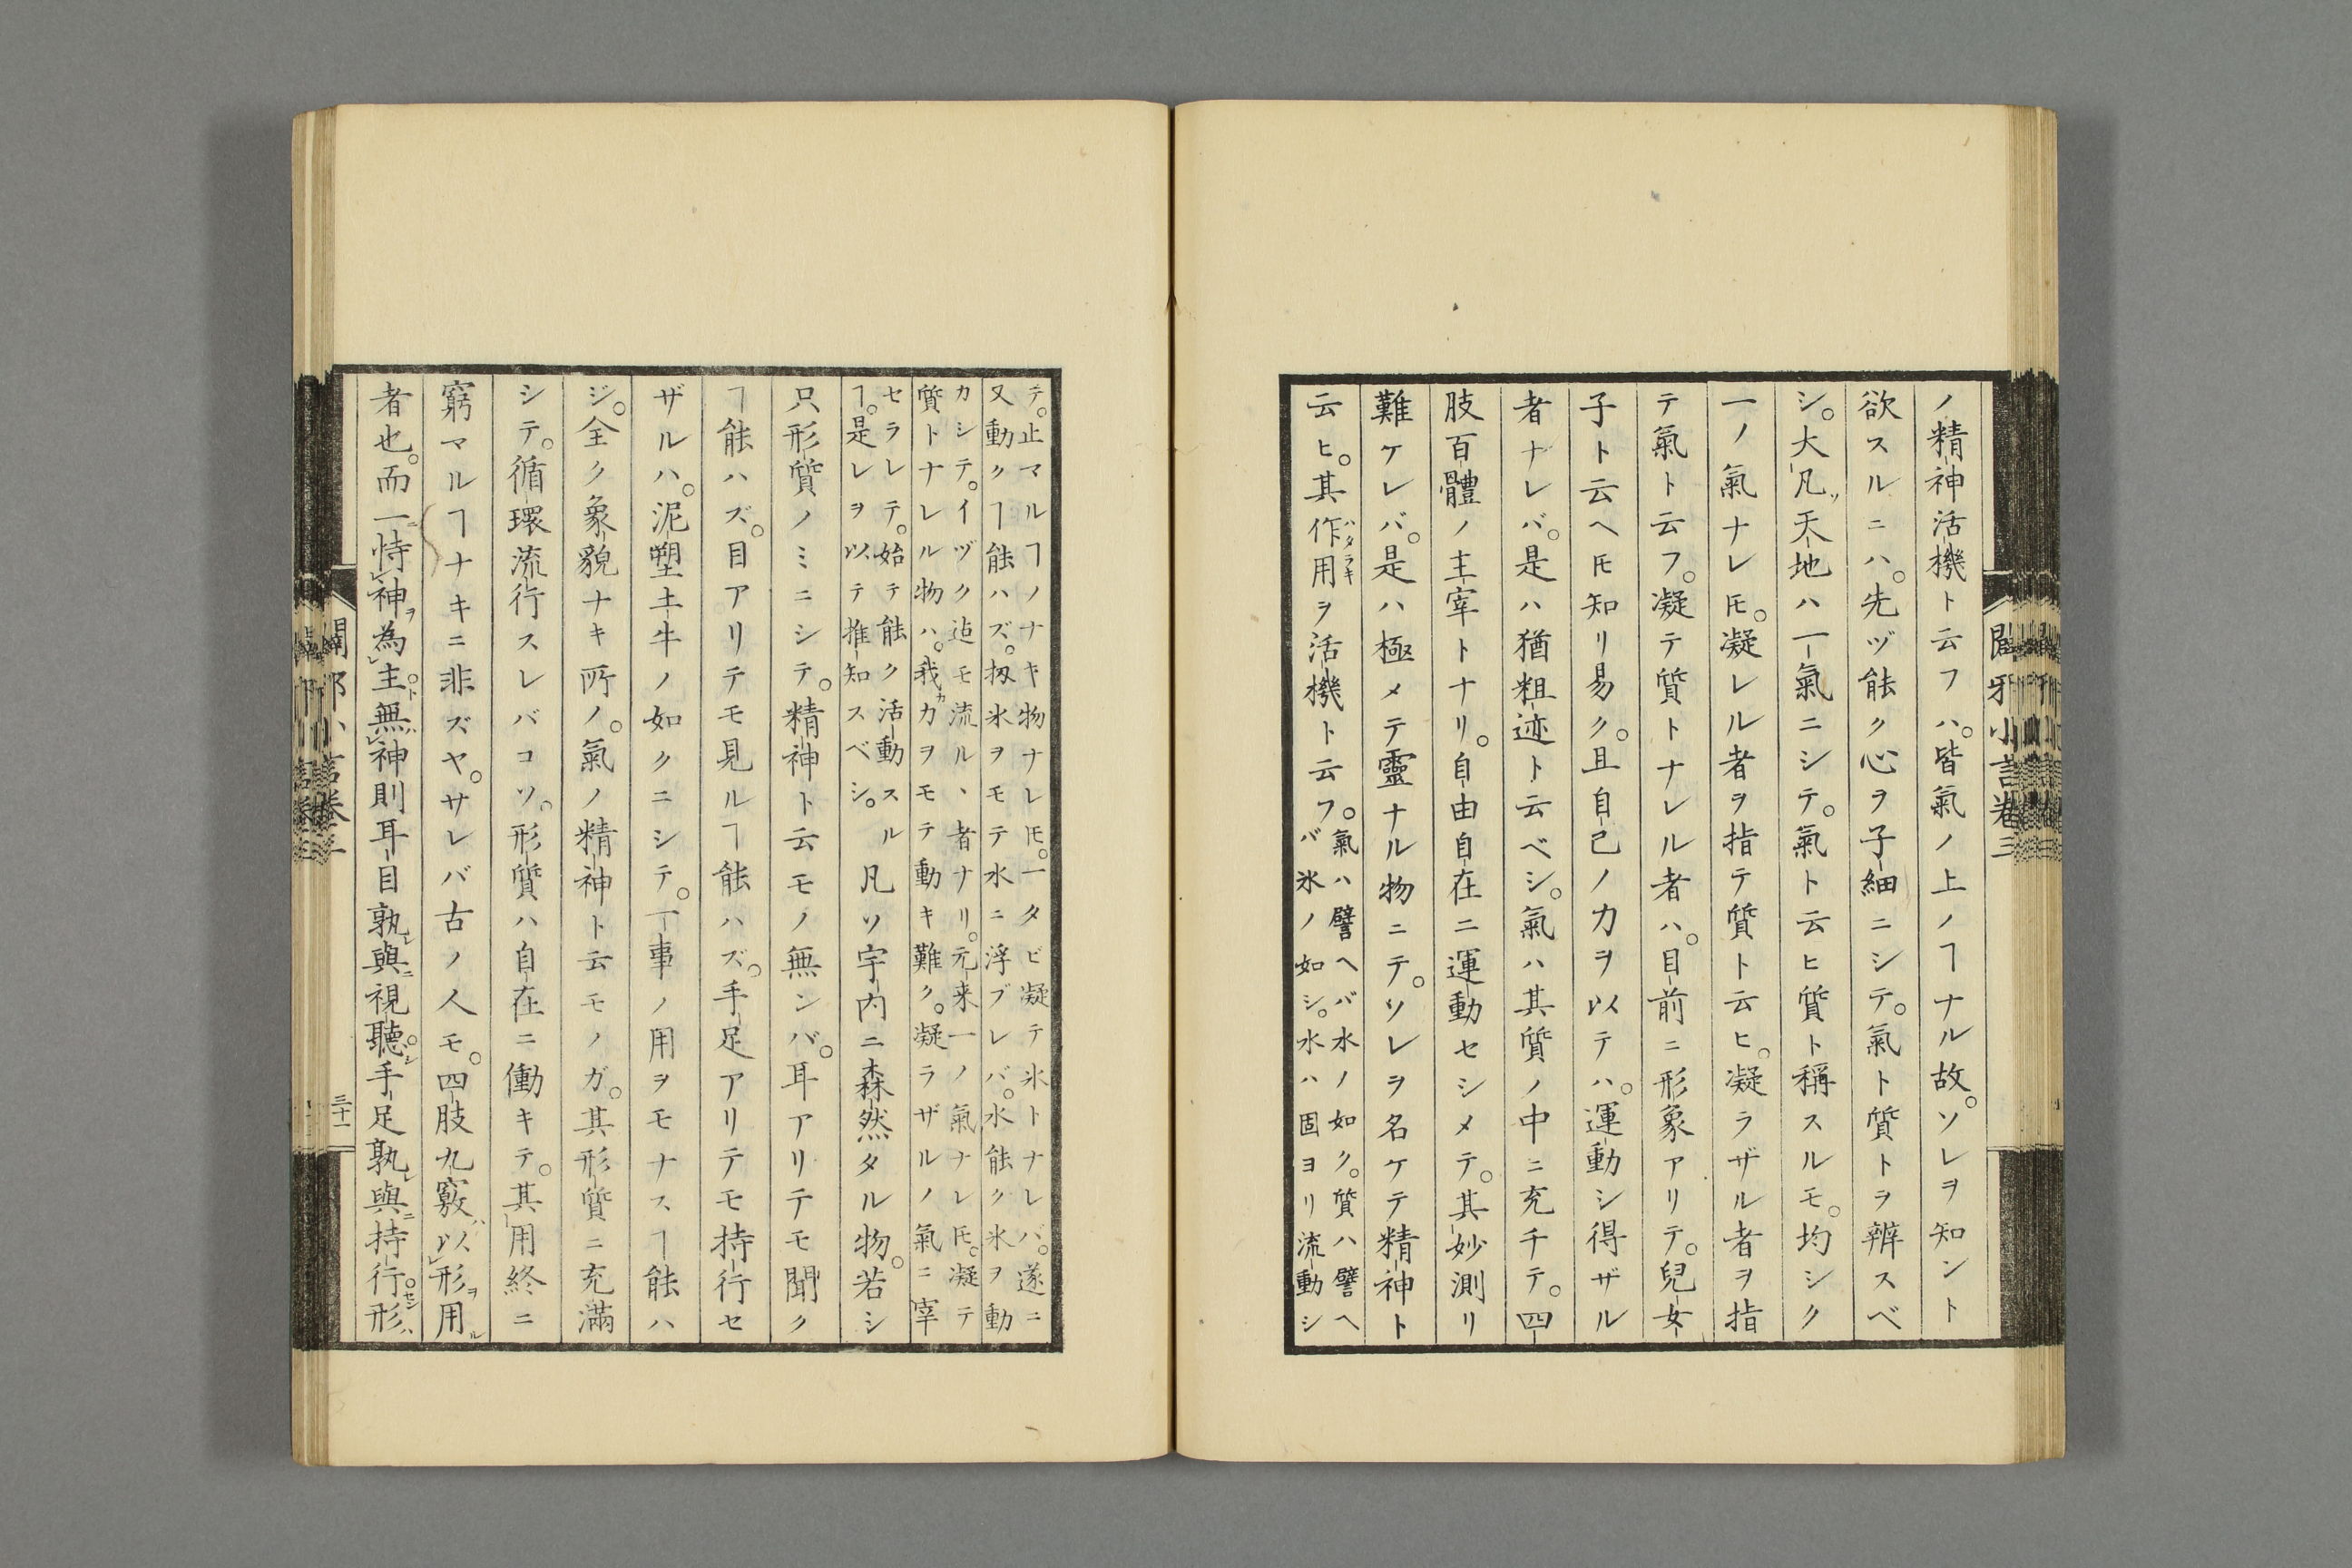 ノ精神活機ト云フハ。皆氣ノ上ノヿナル故。ソレヲ知ント
欲スルニハ。先ヅ能ク心ヲ子細ニシテ。氣ト質トヲ辨スベ
シ。大凡ソ天地ハ一氣ニシテ。氣ト云ヒ質ト稱スルモ。均シク
一ノ氣ナレ𪜈。凝レル者ヲ指テ質ト云ヒ。凝ラザル者ヲ指
テ氣ト云フ。凝テ質トナレル者ハ。目前ニ形象アリテ。兒女
子ト云ヘ𪜈知リ易ク。且自己ノ力ヲ以テハ。運動シ得ザル
者ナレバ。是ハ猶粗迹ト云ベシ。氣ハ其質ノ中ニ充チテ。四
肢百體ノ主宰トナリ。自由自在ニ運動セシメテ。其妙測リ
難ケレバ。是ハ極メテ靈ナル物ニテ。ソレヲ名ケテ精神ト
云ヒ。其作用ヲ活機ト云フ。
ハタラキ
氣ハ譬ヘバ水ノ如ク。質ハ譬ヘ
バ氷ノ如シ。水ハ固ヨリ流動シ
闢邪小言卷三
テ。止マルヿノナキ物ナレ𪜈。一タビ凝テ氷トナレバ。遂ニ
又動クヿ能ハズ。扨氷ヲモテ水ニ浮ブレバ。水能ク氷ヲ動
カシテ。イヅク迠モ流ルヽ者ナリ。元来一ノ氣ナレ𪜈。凝テ
質トナレル物ハ。我カ力ヲモテ動キ難ク。凝ラザルノ氣ニ宰
セラレテ。始テ能ク活動スル
ヿ。是レヲ以テ推知スベシ。
凡ソ宇内ニ森然タル物。若シ
只形質ノミニシテ。精神ト云モノ無ンバ。耳アリテモ聞ク
ヿ能ハズ。目アリテモ見ルヿ能ハズ。手足アリテモ持行セ
ザルハ。泥塑土牛ノ如クニシテ。一事ノ用ヲモナスヿ能ハ
ジ。全ク象貌ナキ所ノ。氣ノ精神ト云モノガ。其形質ニ充滿
シテ。循環流行スレバコソ。形質ハ自在ニ働キテ。其用終ニ
窮マルヿナキニ非ズヤ。サレバ古ノ人モ。四肢九竅ハ以形ヲ用ル
者也。而一ニ恃神ヲ為主ト。無ハ神則耳目孰レ與ニ視聽。シ手足孰レ與ニ持行。セシ形ハ
闢邪小言卷三
三十一